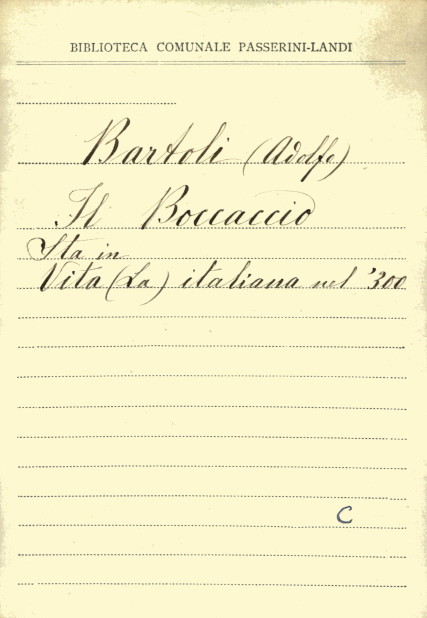 BIBLIOTECA COMUNALE PASSERINI-LANDI
Bartoli (Adolfo)
Il Boccaccio
Sta in
Vita (La) italiana nel '300
C